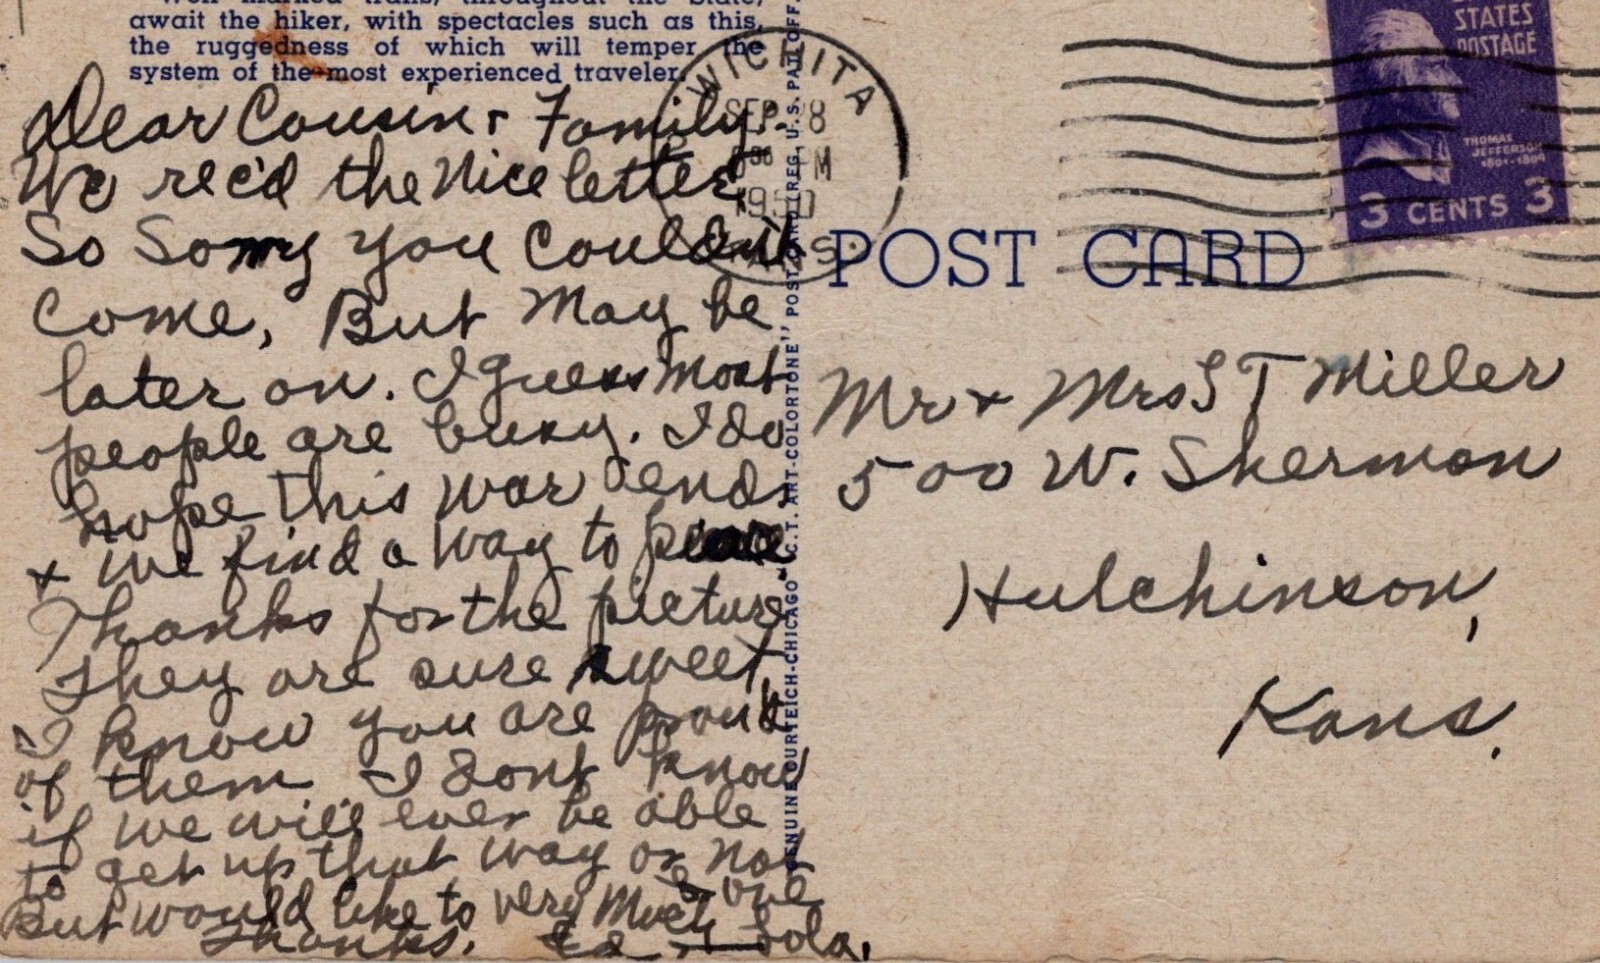 await the hiker, with spectacles such as this,
the ruggedness of which will temper the
system of the most experienced traveler.
Dear Cousin & Family.
We rec'd the Nice letter
So Sorry you Couldn't
Come, But May be
later on. I guess Most
people are busy. I do
hope this war ends
& we find a way to peace
Thanks for the picture
They are sure sweet
I know you are proud
of them I dont know
if we will ever be able
to get up that way or not
But would like to very Much
Love
Thanks. Ed & Lola.
WICHITA
SEP 8
PM
1950
KANS.
GENUINE CURTEICH-CHICAGO "C.T. ART-COLORTONE" POST CARD (REG. U.S. PAT. OFF.)
STATES
POSTAGE
THOMAS
JEFFERSON
1801-1809
3 CENTS 3
POST CARD
Mr & Mrs S T Miller
500 W. Sherman
Hutchinson,
Kans.